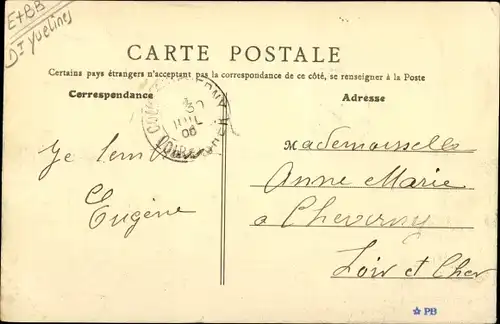 E+BB
Dt Yvelines
CARTE POSTALE
Certains pays étrangers n'acceptant pas la correspondance de ce côté, se renseigner à la Poste
Correspondance
Adresse
30
JUIL
06
LOIR-ET-CHER
Je
Eugène
Mademoiselle
Anne Marie
a Cheverny
Loir et Cher
☆ PB